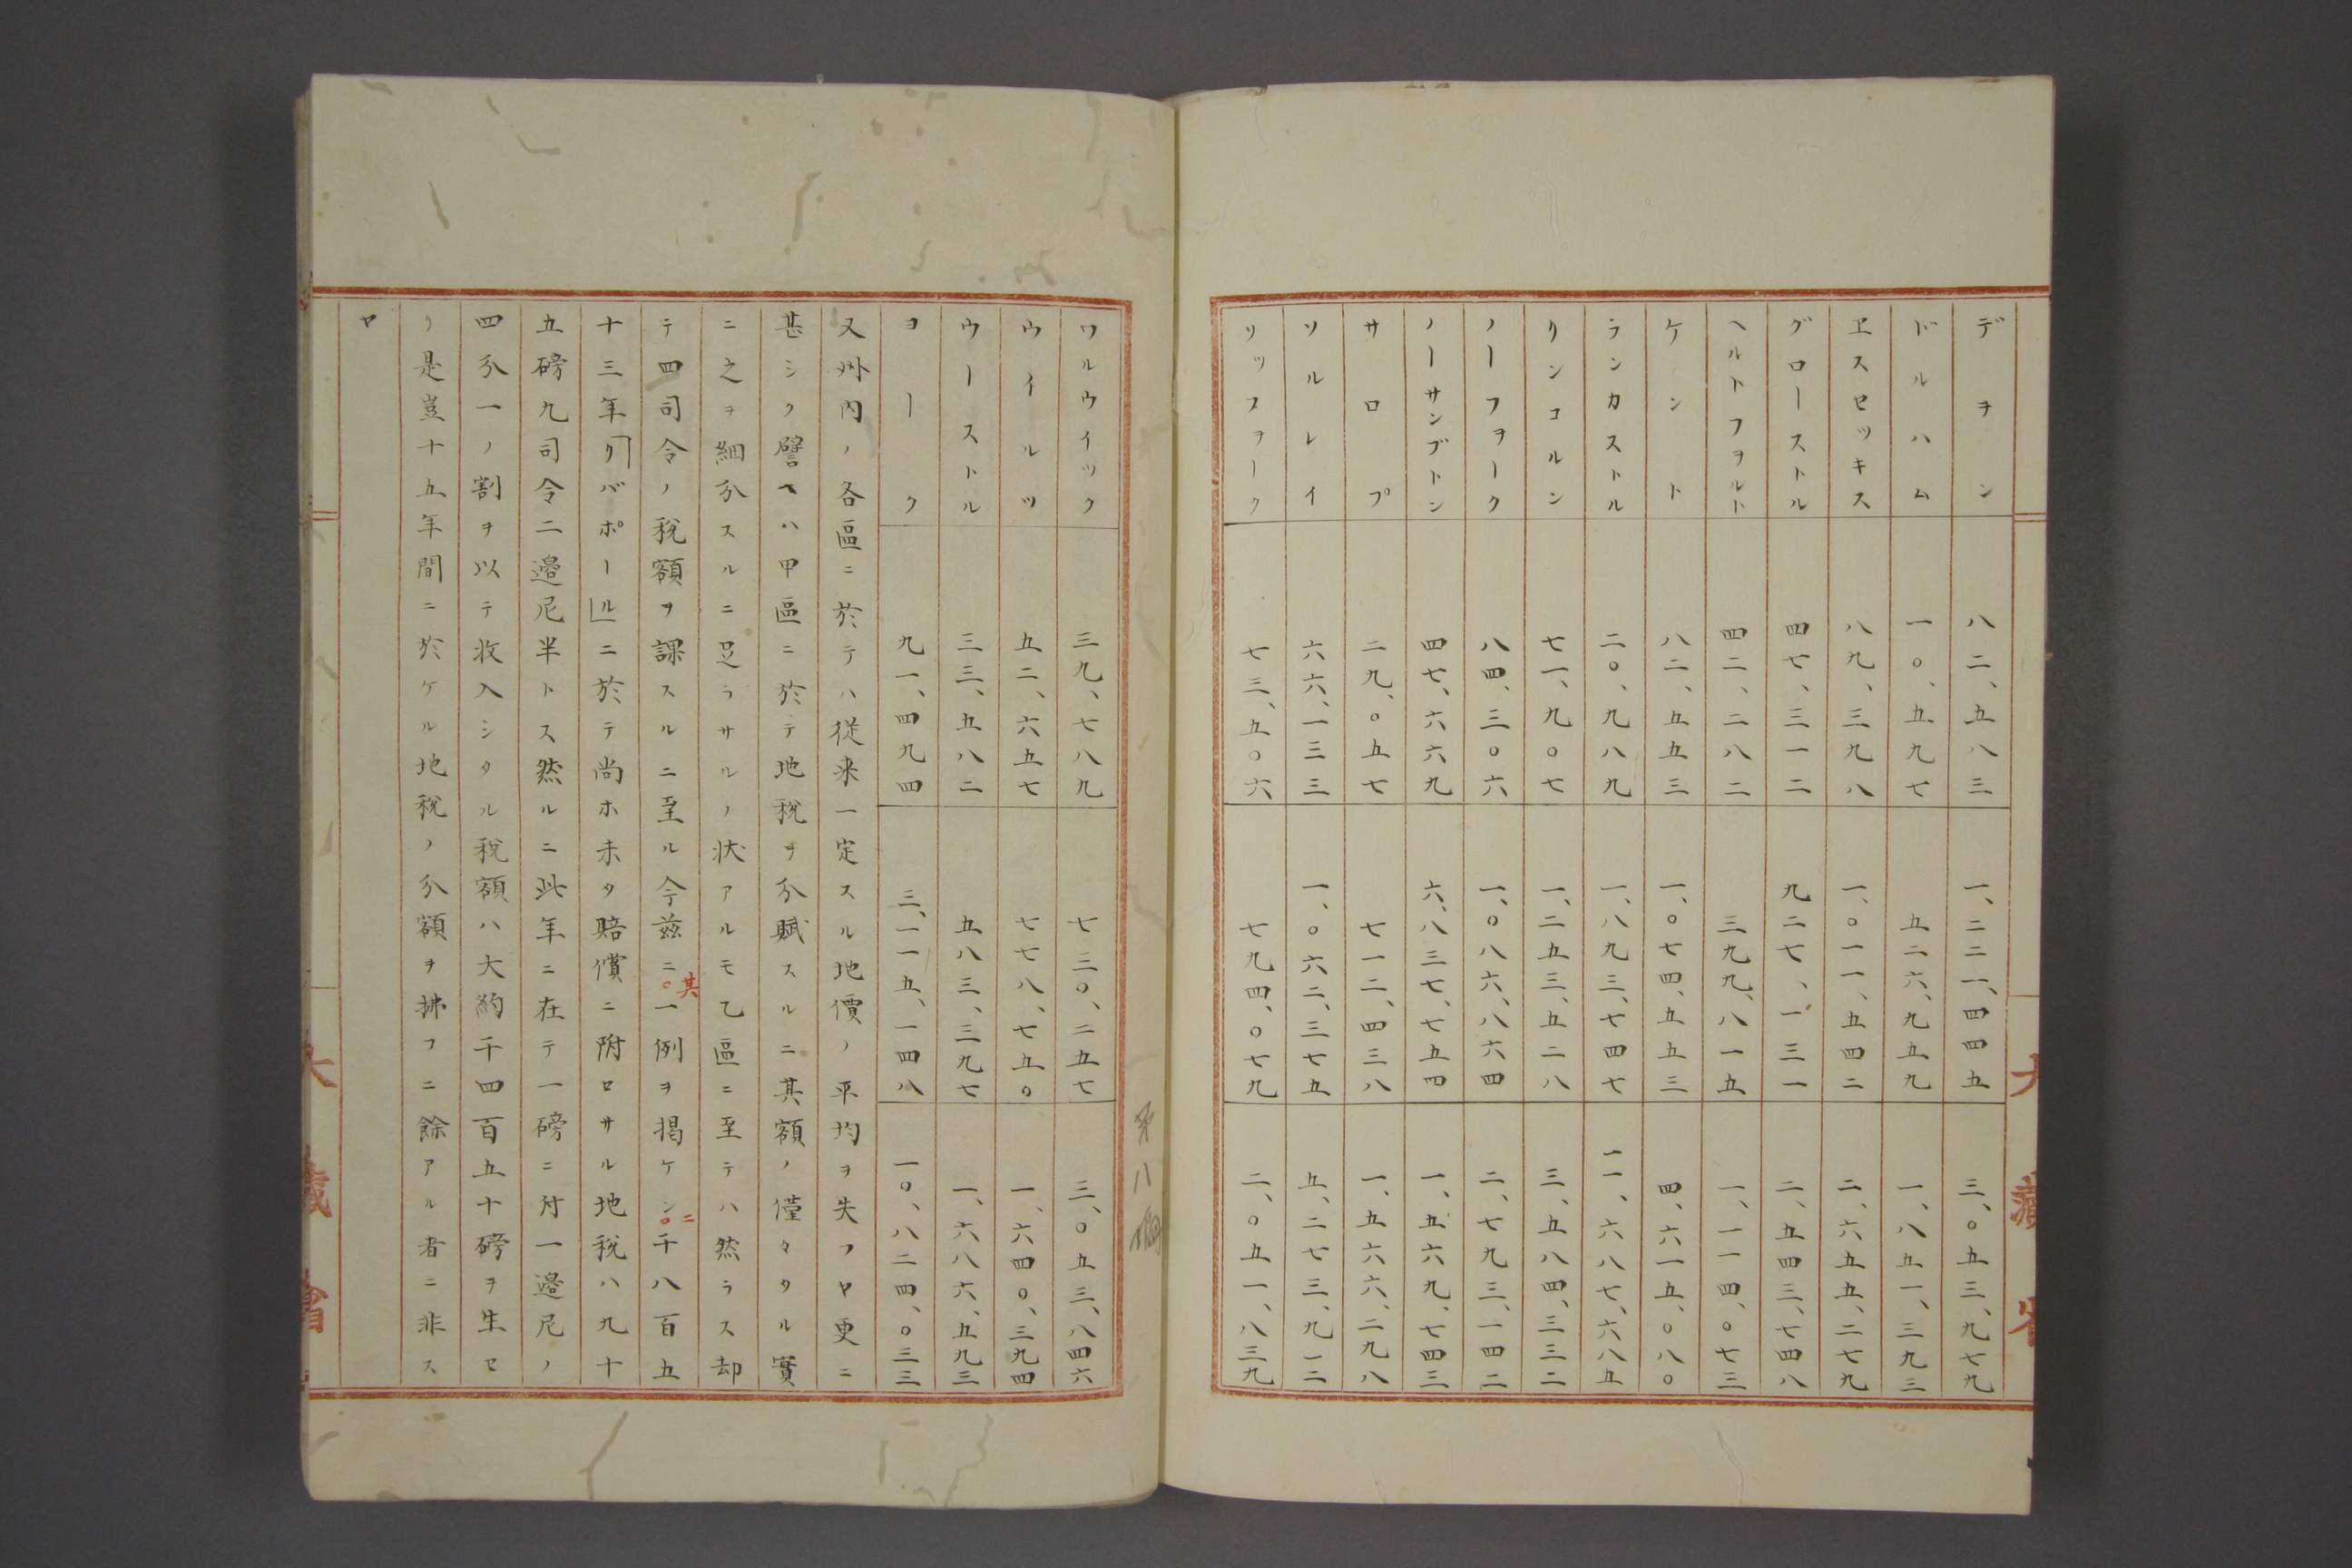 デヲン 八二、五八三 一、二二一、四四五 三、〇五三、九七九
ドルハム 一〇、五九七 五二六、九五九 一、八五一、三九三
ヱスセッキス 八九、三九八 一、〇一一、五四二 二、六五五、二七九
グローストル 四七、三一二 九二七、一三一 二、五四三、七四八
ヘルトフヲルト 四二、二八二 三九九、八一五 一、一一四、〇七三
ケント 八二、五五三 一、〇七四、五五三 四、六一五、〇八〇
ランカストル 二〇、九八九 一、八九三、七四七 一一、六八七、六八五
リンコルン 七一、九〇七 一、二五三、五二八 三、五八四、三三二
ノーフヲーク 八四、三〇六 一、〇八六、八六四 二、七九三、一四二
ノーサンブトン 四七、六六九 六、八三七、七五四 一、五六九、七四三
サロプ 二九、〇五七 七一二、四三八 一、五六六、二九八
ソルレイ 六六、一三三 一、〇六二、三七五 五、二七三、九一二
ソッフヲーク 七三、五〇六 七九四、〇七九 二、〇五一、八三九
ワルウイック 三九、七八九 七三〇、二五七 三、〇五三、八四六
ウイルツ 五二、六五七 七七八、七五〇 一、六四〇、三九四
ウーストル 三三、五八二 五八三、三九七 一、六八六、五九三
ヨーク 九一、四九四 三、一一五、一四八 一〇、八二四、〇三三
又州内ノ各區ニ於テハ従来一定スル地價ノ平均ヲ失フヤ更ニ
甚シク譬ヘハ甲區ニ於テ地稅ヲ分賦スルニ其額ノ僅々タル實
ニ之ヲ細分スルニ足ラサルノ状アルモ乙區ニ至テハ然ラス却
テ四司令ノ稅額ヲ課スルニ至ル今茲ニ其一例ヲ揭ケンニ千八百五
十三年「リバポール」ニ於テ尚ホ未タ賠償ニ附ロサル地稅ハ九十
五磅九司令二邉尼半トス然ルニ此年ニ在テ一磅ニ付一邉尼ノ
四分一ノ割ヲ以テ收入シタル稅額ハ大約千四百五十磅ヲ生セ
リ是豈十五年間ニ於ケル地稅ノ分額ヲ拂フニ餘アル者ニ非ス
ヤ
大藏省